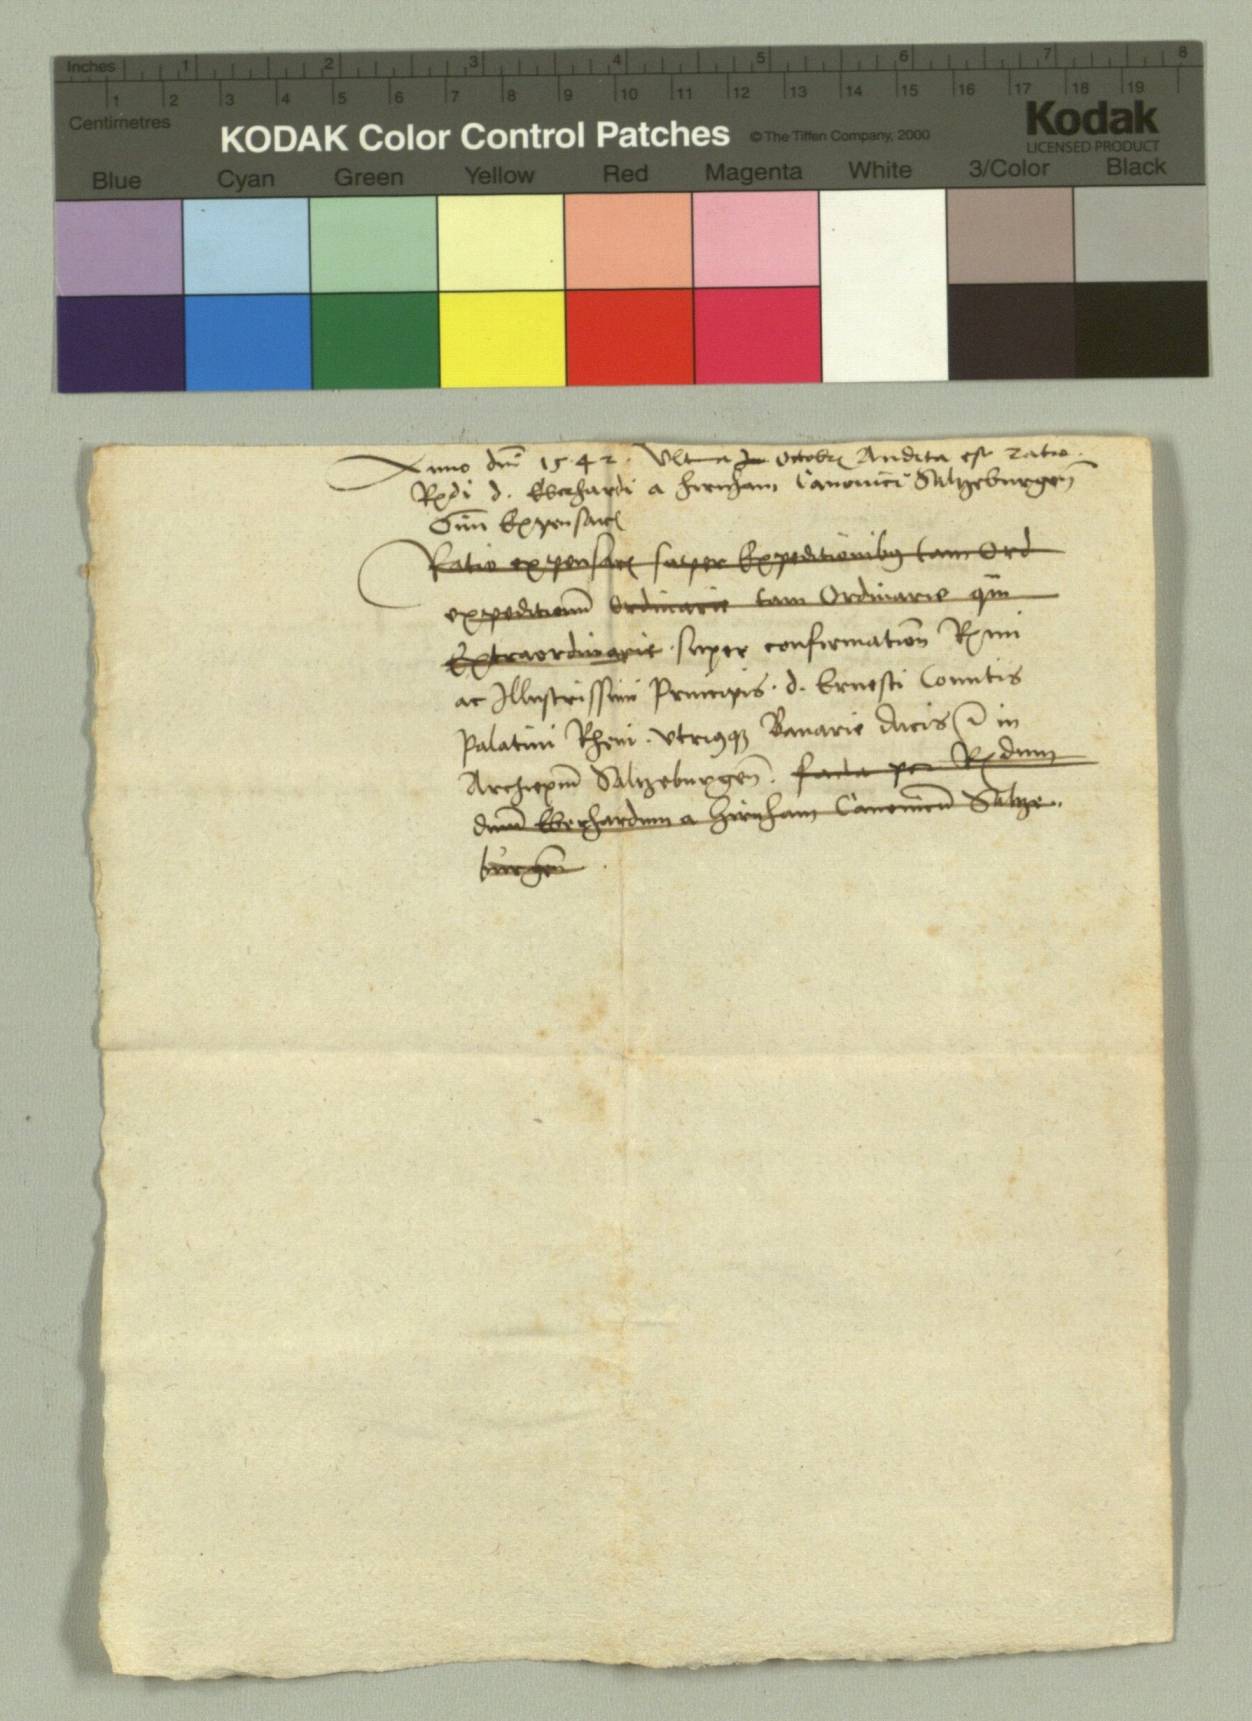 Inches 1 2 3 4 5 6 7 8
1 2 3 4 5 6 7 8 9 10 11 12 13 14 15 16 17 18 19
Centimetres
KODAK Color Control Patches © The Tiffen Company, 2000 Kodak
LICENSED PRODUCT
Blue Cyan Green Yellow Red Magenta White 3/Color Black
Anno dni 1542. Ultima Octobr Audita est ratio
Rdi d. Eberhardi a hirnham Canonici Saltzeburgen
Cum Expensar
Ratio expensar super Expeditionibus tam Ord
expeditionu ordinarie tam Ordinarie qm
Extraordinarie super confirmation Rmi
ac Illustrissimi Principis d. Ernesti Comitis
Palatini Rheni utriusq Bavarie ducis in
Archiepm Saltzeburgen. facta per Rdum
dnm Eberhardum a hirnham Canonicu Saltze
burgen